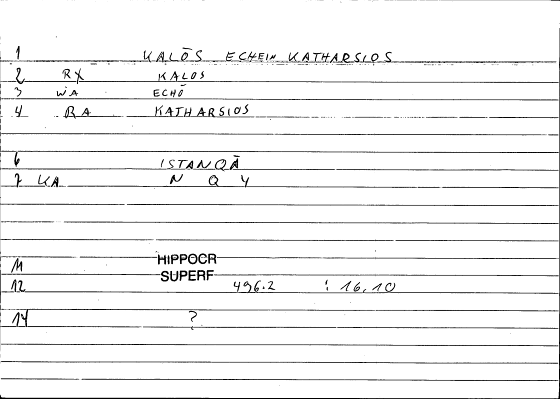 1 KALŌS ECHEIN KATHARSIOS
2 RX KALOS
3 WA ECHŌ
4 RA KATHARSIOS
6 ISTANQĀ
7 KA N Q Y
11 HIPPOCR
SUPERF
12 496.2 : 16,10
14 ?